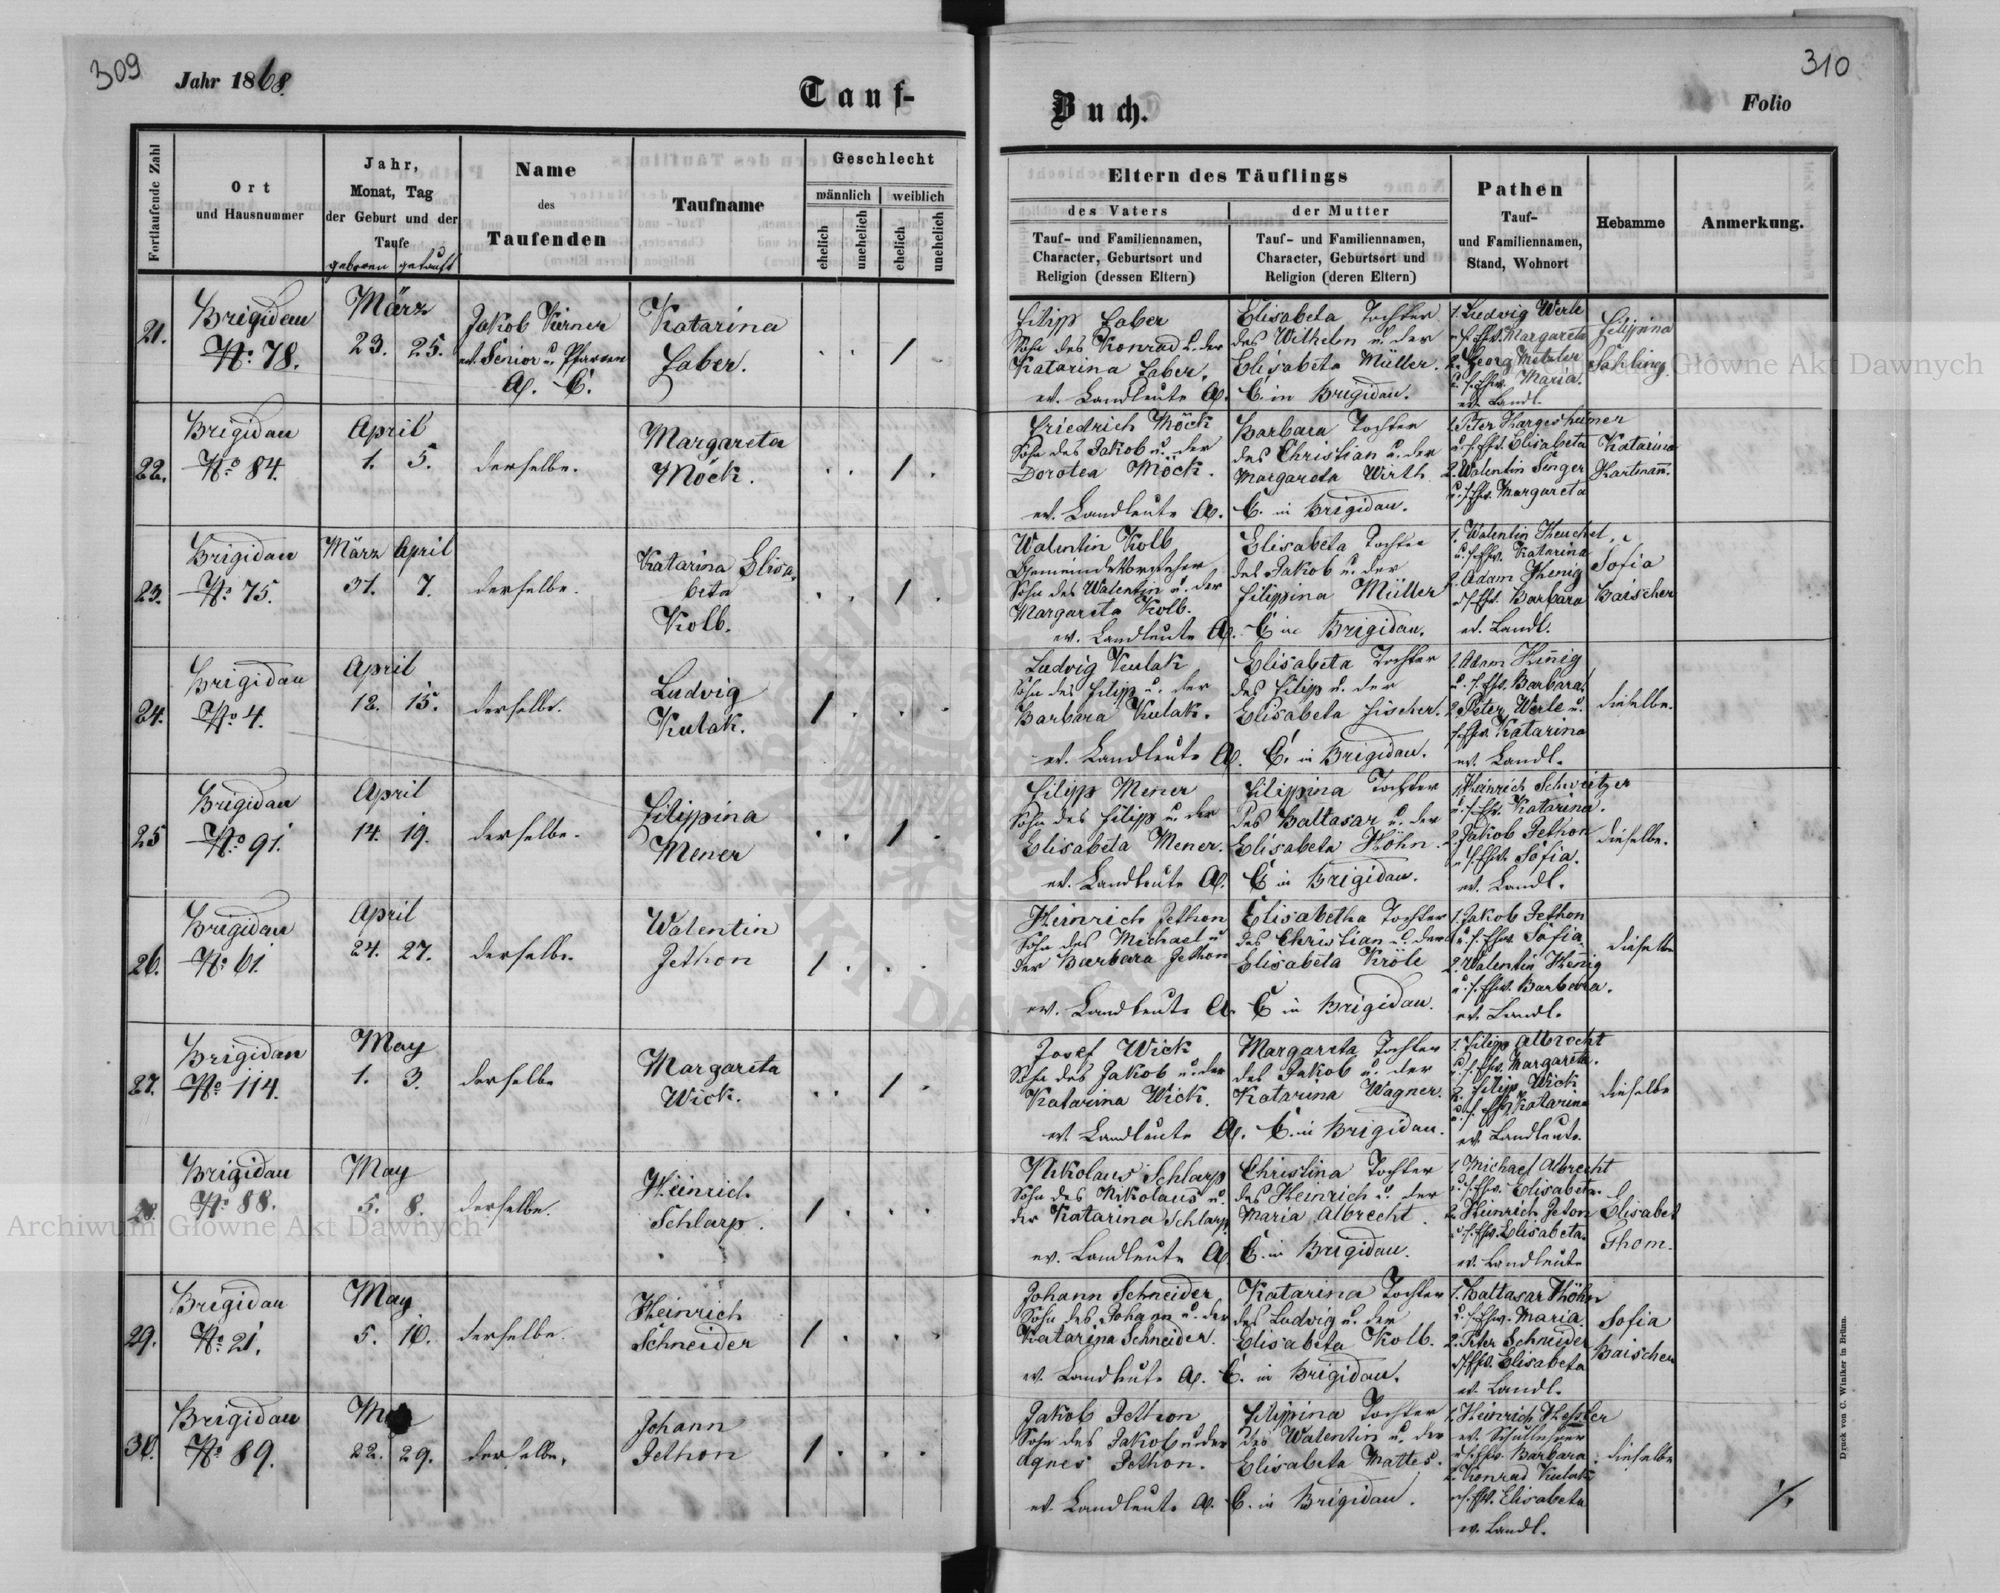 309
Jahr 1868.
Tauf-
Fortlaufende Zahl
Ort
und Hausnummer
Jahr,
Monat, Tag
der Geburt und der
Taufe
geboren getauft
Name
des
Taufenden
Taufname
Geschlecht
männlich weiblich
ehelich
unehelich
ehelich
unehelich
21.
Brigidau
No. 78.
März
23. 25.
Jakob Kirner
ev. Senior u. Pfarrer
A. C.
Katarina
Faber.
22.
Brigidau
No 84.
April
1. 5.
derselbe.
Margareta
Möck.
23.
Brigidau
No. 75.
März April
31. 7.
derselbe.
Katarina Elisa-
beta
Kolb.
24.
Brigidau
No 4.
April
12. 15.
derselbe.
Ludvig
Kulak.
25
Brigidau
No 91.
April
14. 19.
derselbe.
Filippina
Mener
26.
Brigidau
No. 61.
April
24. 27.
derselbe.
Walentin
Jethon
27.
Brigidau
No 114.
May
1. 3.
derselbe
Margareta
Wick.
28.
Brigidau
No. 88.
May
5. 8.
derselbe.
Heinrich
Schlarp.
29.
Brigidau
No. 21.
May
5. 10.
derselbe.
Heinrich
Schneider
30.
Brigidau
No 89.
22. 29.
derselbe.
Johann
Jethon
310
Buch.
Folio
Eltern des Täuflings
des Vaters
Tauf- und Familiennamen,
Character, Geburtsort und
Religion (dessen Eltern)
der Mutter
Tauf- und Familiennamen,
Character, Geburtsort und
Religion (deren Eltern)
Pathen
Tauf-
und Familiennamen,
Stand, Wohnort
Hebamme
Anmerkung.
Filipp Faber
Sohn des Konrad u. der
Katarina Faber.
Elisabeta Tochter
des Wilhelm u. der
Elisabeta Müller.
ev. Landleute A. C. in Brigidau.
1. Ludvig Werle
u. s. Ehw. Margareta
2. Georg Metzler
u. s. Ehw. Maria.
ev. Landl.
Filippina
Sahling.
Friedrich Möck
Sohn des Jakob u. der
Dorotea Möck.
Barbara Tochter
des Christian u. der
Margareta Wirth
ev. Landleute A. C. in Brigidau.
1. Peter Hargesheimer
u. s. Ehw. Elisabeta
2. Walentin Singer
u. s. Ehw. Margareta
Katarina
Hartmañ.
Walentin Kolb
Gemeind-Vorsteher
Sohn des Walentin u. der
Margareta Kolb.
Elisabeta Tochter
des Jakob u. der
Filippina Müller
ev. Landleute A. C in Brigidau.
1. Walentin Heuchel,
u. s. Ehw. Katarina
2. Adam Henig
u. s. Ehw. Barbara
ev. Landl.
Sofia
Baischer
Ludvig Kulak
Sohn des Filip u. der
Barbara Kulak.
Elisabeta Tochter
des Filip u. der
Elisabeta Fischer.
ev. Landleute A. C. in Brigidau.
1. Adam Hinig
u. s. Ehw. Barbara.
2. Peter Werle u.
s. Ehw. Katarina
ev. Landl.
dieselbe.
Filipp Mener
Sohn des Filip u. der
Elisabeta Mener.
Filippina Tochter
des Baltasar u. der
Elisabeta Höhn.
ev. Landleute A. C in Brigidau.
1. Heinrich Schwitzer
u. s. Ehw. Katarina.
2. Jakob Jethon
u. s. Ehw. Sofia.
ev. Landl.
dieselbe.
Heinrich Jethon
Sohn des Michael u
der Barbara Jethon
Elisabetha Tochter
des Christian u. der
Elisabeta Kröle
ev. Landleute A. C in Brigidau.
1. Jakob Jethon
u. s. Ehw. Sofia.
2. Walentin Henig
u. s. Ehw. Barbara.
ev. Landl.
dieselbe
Josef Wick
Sohn des Jakob u. der
Katarina Wick.
Margareta Tochter
des Jakob u. der
Katarina Wagner.
ev. Landleute A. C. in Brigidau.
1. Filipp Albrecht
u. s. Ehw. Margareta.
2. Filip Wick
u. s. Ehw. Katarina
ev. Landleute.
dieselbe
Nikolaus Schlarp
Sohn des Nikolaus u.
der Katarina Schlarp
Christina Tochter
des Heinrich u. der
Maria Albrecht.
ev. Landleute A. C. in Brigidau.
1. Michael Albrecht
u. s. Ehw. Elisabeta.
2. Heinrich Jeton
u. s. Ehw. Elisabeta.
ev. Landleute
Elisabet
Thom.
Johann Schneider
Sohn des Johann u. der
Katarina Schneider.
Katarina Tochter
des Ludvig u. der
Elisabeta Kolb.
ev. Landleute A. C. in Brigidau.
1. Baltasar Höhn
u. s. Ehw. Maria.
2. Peter Schneider
u. s. Ehw. Elisabeta
ev. Landl.
Sofia
Baischer
Jakob Jethon
Sohn des Jakob u der
Agnes Jethon.
Filippina Tochter
des Walentin u. der
Elisabeta Mattes.
ev. Landleute A. C. in Brigidau.
1. Heinrich Hessler
ev. Schullehrer
u. s. Ehw. Barbara
2. Konrad Kulak
u. s. Ehw. Elisabeta
ev. Landl.
dieselbe
Druck von C. Winiker in Brünn.
Archiwum Główne Akt Dawnych